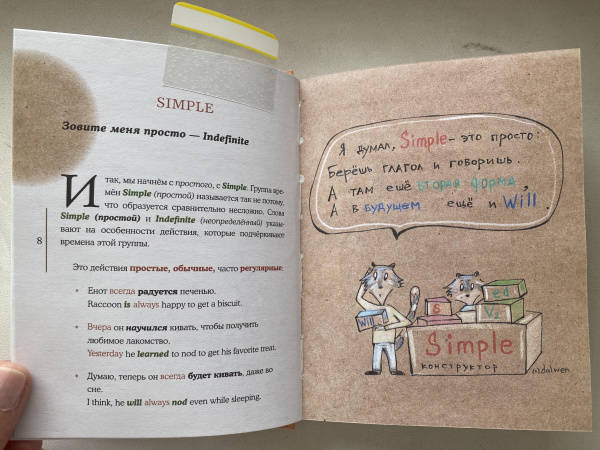 SIMPLE
Зовите меня просто — Indefinite
Итак, мы начнём с простого, с Simple. Группа вре-
мён Simple (простой) называется так не потому,
что образуется сравнительно несложно. Слова
Simple (простой) и Indefinite (неопределённый) указы-
вают на особенности действия, которые подчёркивают
времена этой группы.
8
Это действия простые, обычные, часто регулярные:
• Енот всегда радуется печенью.
Raccoon is always happy to get a biscuit.
• Вчера он научился кивать, чтобы получить
любимое лакомство.
Yesterday he learned to nod to get his favorite treat.
• Думаю, теперь он всегда будет кивать, даже во
сне.
I think, he will always nod even while sleeping.
Я думал, Simple – это просто:
Берёшь глагол и говоришь.
А там ещё вторая форма,
А в будущем ещё и Will.
Will
S
ed
V2
Simple
конструктор